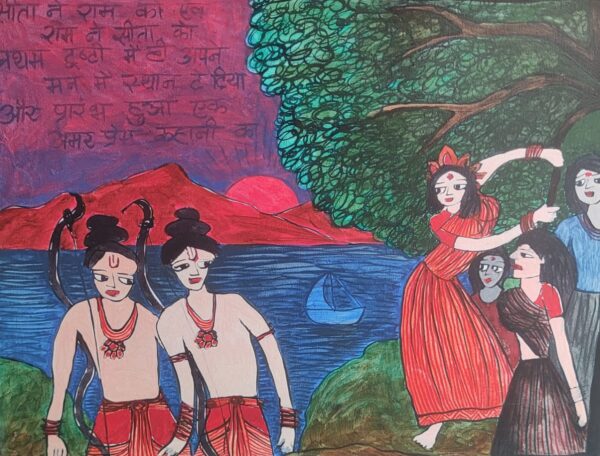 सीता ने राम को एवं
राम ने सीता को
प्रथम दृष्टी में ही अपने
मन में स्थान दे दिया
और प्रारंभ हुआ एक
अमर प्रेम कहानी का